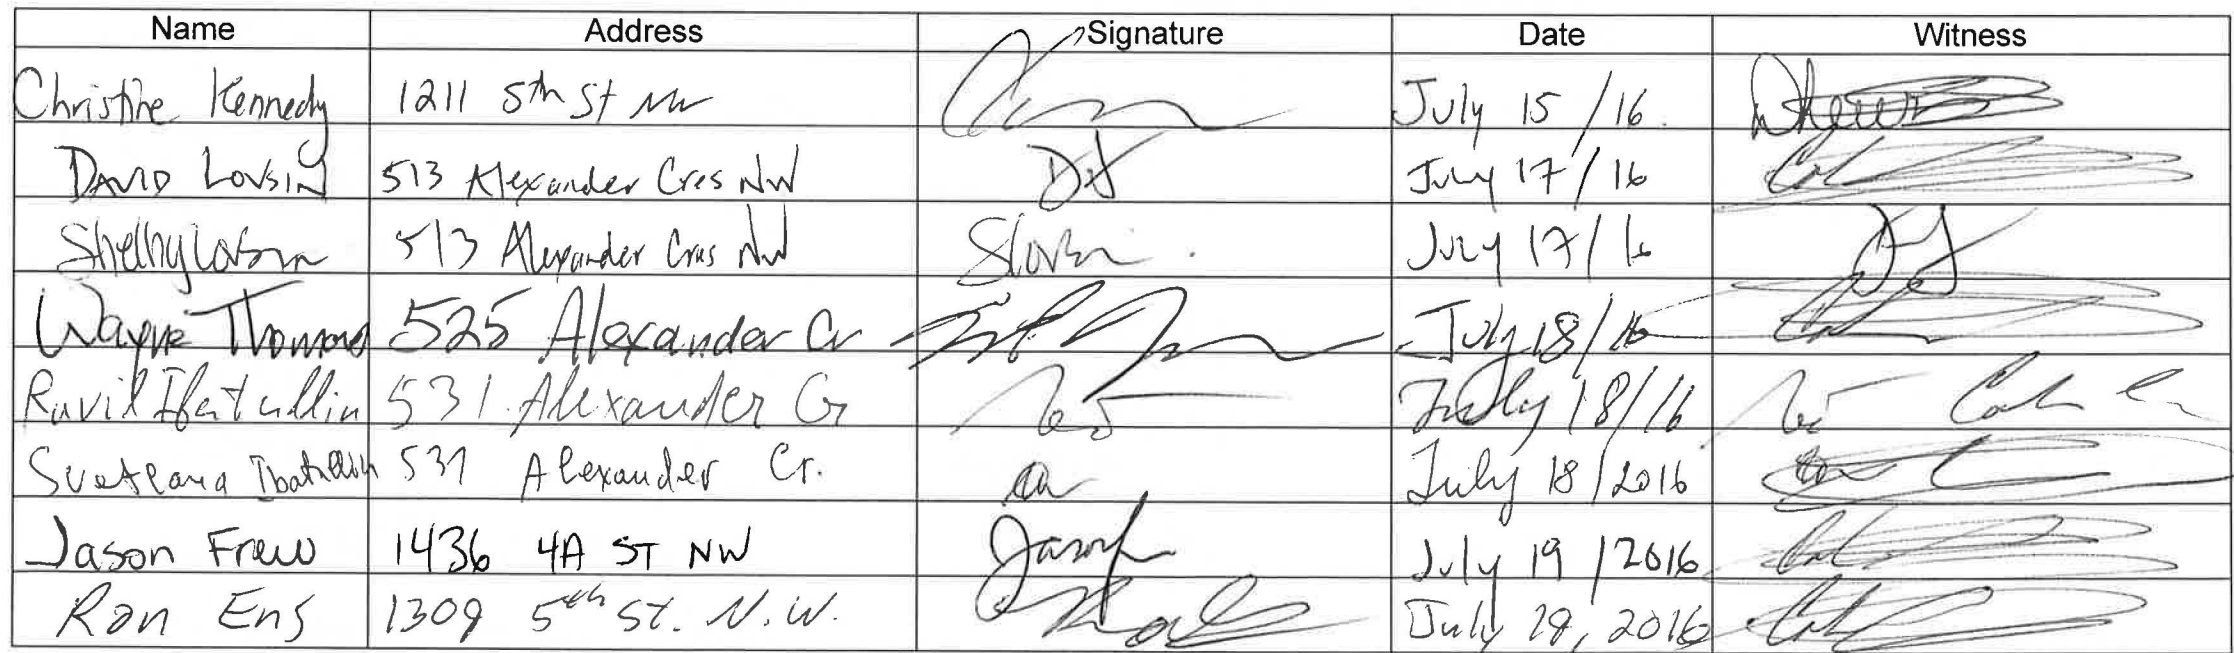 Name Address Signature Date Witness
Christine Kennedy 1211 5th St NW July 15 /16.
DAVID LOVSIN 513 Alexander Cres NW DL July 17/16
Shelly Lovsin 513 Alexander Cres NW SLovsin. July 17/16 DL
Wayne Thomas 525 Alexander Cr July 18/16
Ravil Ibatullin 531 Alexander Cr July 18/16
Svetlana Ibatullin 531 Alexander Cr. July 18/2016
Jason Frew 1436 4A ST NW Jason July 19/2016
Ron Ens 1309 5th St. N.W. July 19, 2016